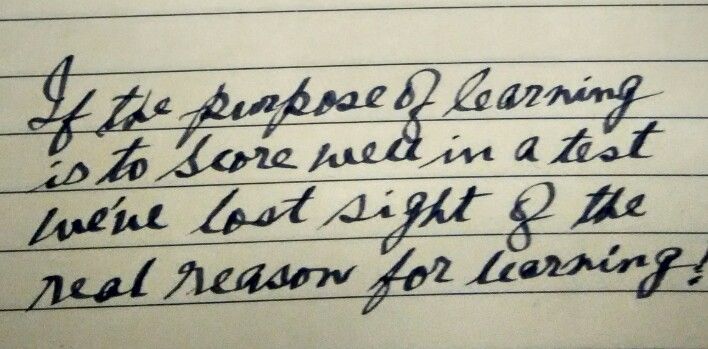 If the purpose of learning
is to score well in a test
we've lost sight of the
real reason for learning!